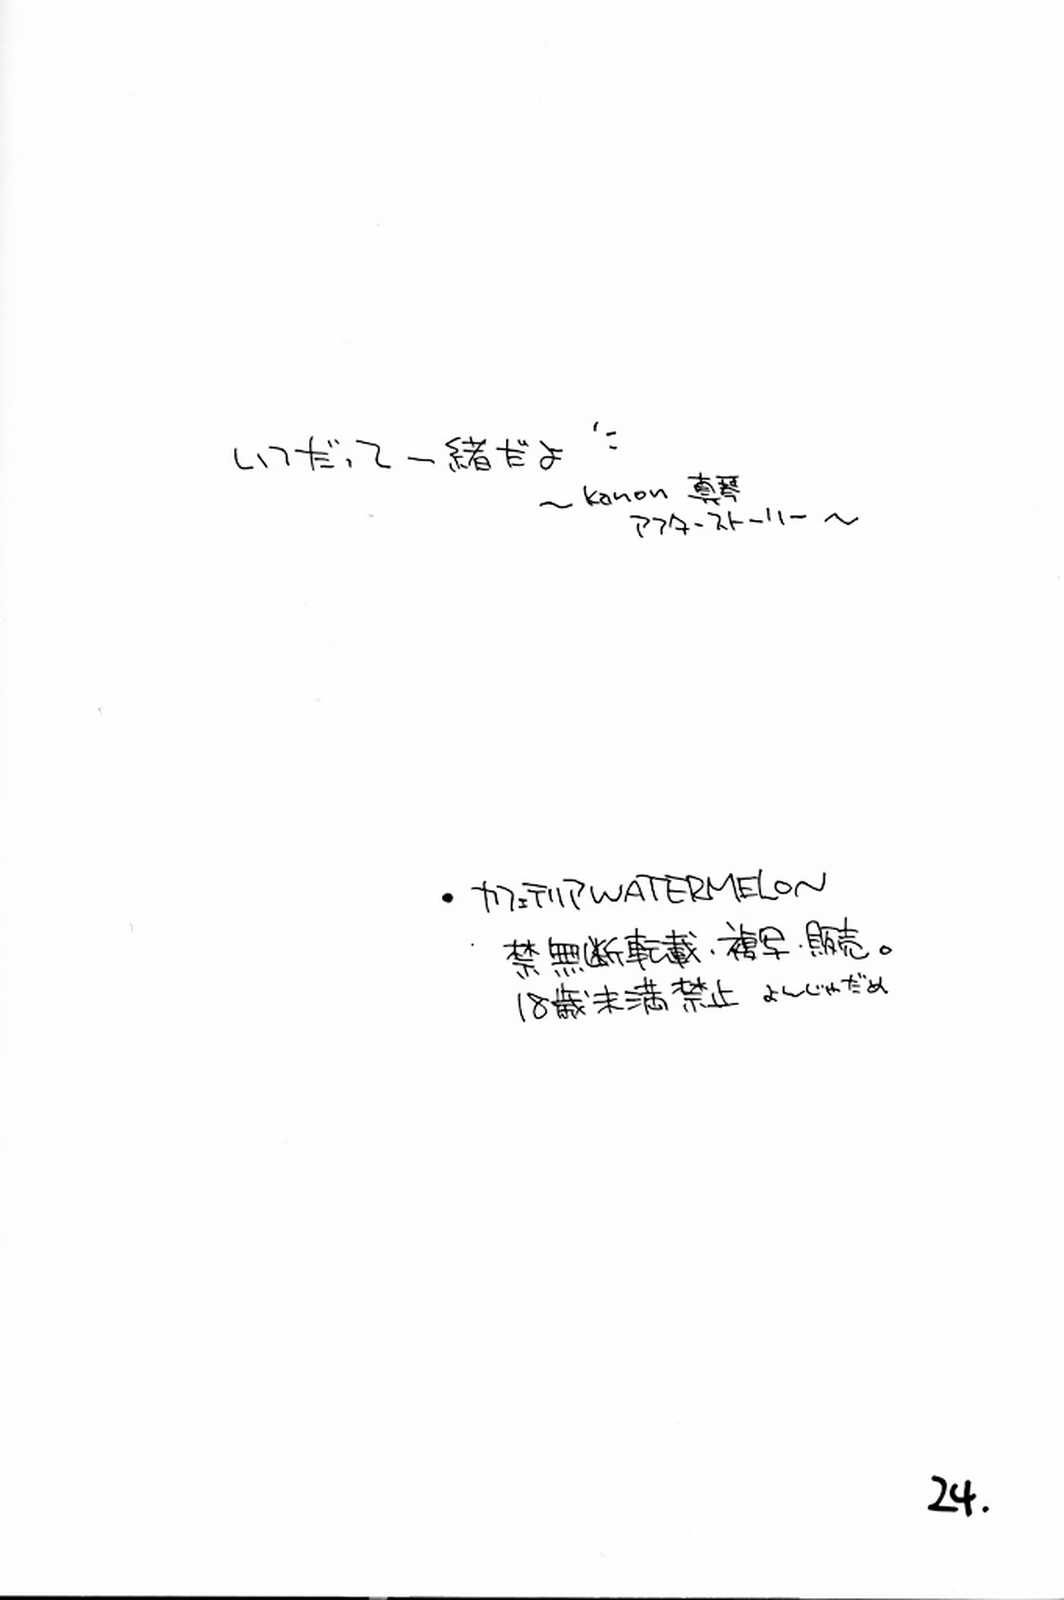 いつだって一緒だよ
～Kanon 真琴
アフターストーリー～
・カフェテリアWATERMELON
禁無断転載・複写・販売。
18歳未満禁止 よんじゃだめ
24.